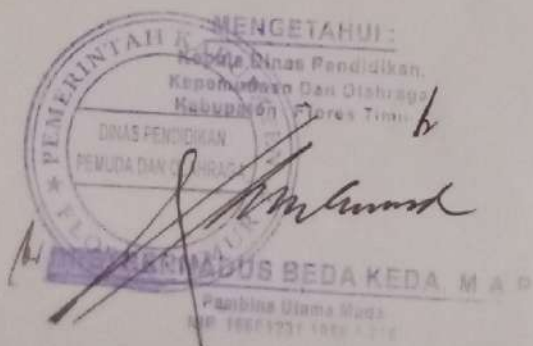 MENGETAHUI :
Kepala Dinas Pendidikan,
Kepemudaan Dan Olahraga
Kabupaten Flores Timur
PEMERINTAH
DINAS PENDIDIKAN
PEMUDA DAN OLAHRAGA
FLORES TIMUR
BERNADUS BEDA KEDA, M A P
Pembina Utama Muda
NIP